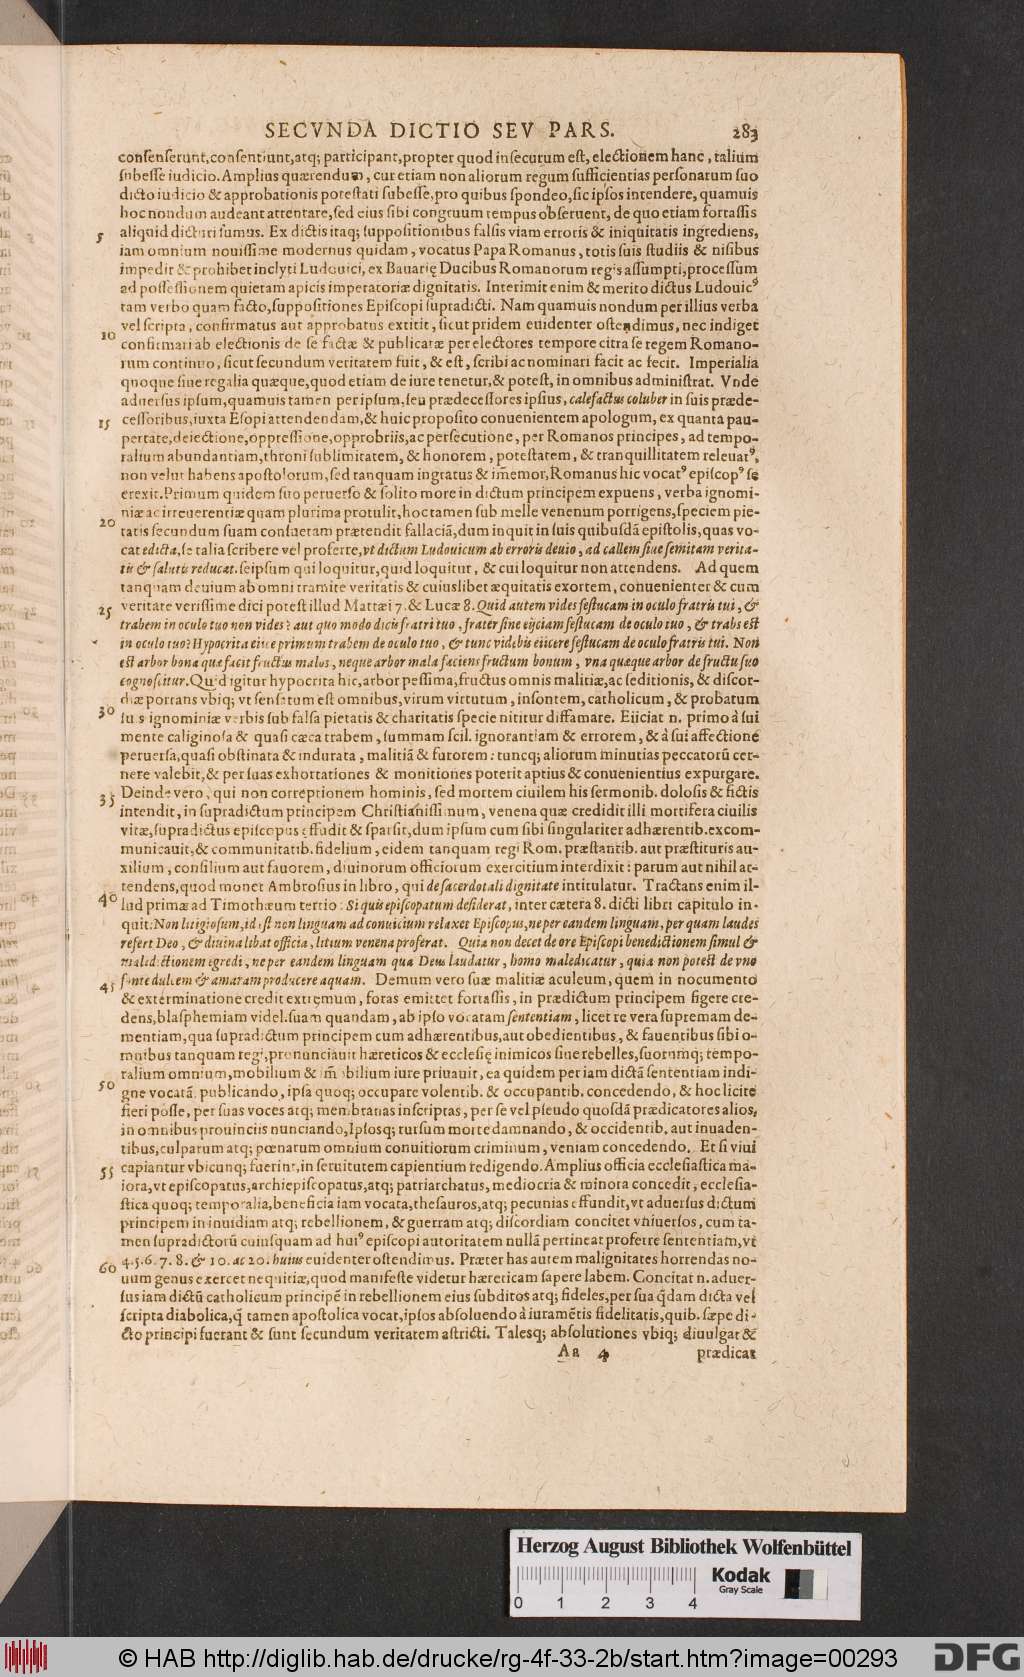 SECVNDA DICTIO SEV PARS. 283
consenserunt, consentiunt, atq; participant, propter quod insecurum est, electionem hanc, talium
subesse iudicio. Amplius quærendum, cur etiam non aliorum regum sufficientias personarum suo
dicto iudicio & approbationis potestati subesse, pro quibus spondeo, sic ipsos intendere, quamuis
hoc nondum audeant attentare, sed eius sibi congruum tempus obseruent, de quo etiam fortassis
5 aliquid dicturi sumus. Ex dictis itaq; suppositionibus falsis viam erroris & iniquitatis ingrediens,
iam omnium nouissime modernus quidam, vocatus Papa Romanus, totis suis studiis & nisibus
impedit & prohibet inclyti Ludouici, ex Bauarię Ducibus Romanorum regis assumpti, processum
ad possessionem quietam apicis imperatoriæ dignitatis. Interimit enim & merito dictus Ludouicꝰ
tam verbo quam facto, suppositiones Episcopi supradicti. Nam quamuis nondum per illius verba
10 vel scripta, confirmatus aut approbatus extitit, sicut pridem euidenter ostendimus, nec indiget
confirmari ab electionis de se factæ & publicatæ per electores tempore citra se regem Romano-
rum continuo, sicut secundum veritatem fuit, & est, scribi ac nominari facit ac fecit. Imperialia
quoque siue regalia quæque, quod etiam de iure tenetur, & potest, in omnibus administrat. Vnde
aduersus ipsum, quamuis tamen per ipsum, seu prædecessores ipsius, calefactus coluber in suis præde-
15 cessoribus, iuxta Esopi attendendam, & huic proposito conuenientem apologum, ex quanta pau-
pertate, deiectione, oppressione, opprobriis, ac persecutione, per Romanos principes, ad tempo-
ralium abundantiam, throni sublimitatem, & honorem, potestatem, & tranquillitatem releuatꝰ,
non velut habens apostolorum, sed tanquam ingratus & im̃emor, Romanus hic vocatꝰ episcopꝰ se
erexit. Primum quidem suo peruerso & solito more in dictum principem expuens, verba ignomi-
20 niæ ac irreuerentiæ quam plurima protulit, hoc tamen sub melle venenum porrigens, speciem pie-
tatis secundum suam consuetam prætendit fallaciã, dum inquit in suis quibusdã epistolis, quas vo-
cat edicta, se talia scribere vel proferre, vt dictum Ludouicum ab erroris deuio, ad callem siue semitam verita-
tis & salutis reducat. seipsum qui loquitur, quid loquitur, & cui loquitur non attendens. Ad quem
tanquam deuium ab omni tramite veritatis & cuiuslibet æquitatis exortem, conuenienter & cum
25 veritate verissime dici potest illud Mattæi 7. & Lucæ 8. Quid autem vides festucam in oculo fratris tui, &
trabem in oculo tuo non vides? aut quo modo dicis fratri tuo, frater sine eijciam festucam de oculo tuo, & trabs est
in oculo tuo? Hypocrita eiice primum trabem de oculo tuo, & tunc videbis eiicere festucam de oculo fratris tui. Non
est arbor bona quæ facit fructus malos, neque arbor mala faciens fructum bonum, vna quæque arbor de fructu suo
cognoscitur. Quid igitur hypocrita hic, arbor pessima, fructus omnis malitiæ, ac seditionis, & discor-
30 diæ portans vbiq; vt sensatum est omnibus, virum virtutum, insontem, catholicum, & probatum
suis ignominiæ verbis sub falsa pietatis & charitatis specie nititur diffamare. Eijciat n. primo à sui
mente caliginosa & quasi cæca trabem, summam scil. ignorantiam & errorem, & à sui affectione
peruersa, quasi obstinata & indurata, malitiã & furorem: tuncq; aliorum minutias peccatorũ cer-
nere valebit, & per suas exhortationes & monitiones poterit aptius & conuenientius expurgare.
35 Deinde vero, qui non correptionem hominis, sed mortem ciuilem his sermonib. dolosis & fictis
intendit, in supradictum principem Christianissimum, venena quæ credidit illi mortifera ciuilis
vitæ, supradictus episcopus effudit & sparsit, dum ipsum cum sibi singulariter adhærentib. excom-
municauit, & communitatib. fidelium, eidem tanquam regi Rom. præstantib. aut præstituris au-
xilium, consilium aut fauorem, diuinorum officiorum exercitium interdixit: parum aut nihil at-
40 tendens, quod monet Ambrosius in libro, qui de sacerdotali dignitate intitulatur. Tractans enim il-
lud primæ ad Timothæum tertio: Si quis episcopatum desiderat, inter cætera 8. dicti libri capitulo in-
quit: Non litigiosum, id est non linguam ad conuicium relaxet Episcopus, ne per eandem linguam, per quam laudes
refert Deo, & diuina libat officia, litium venena proferat. Quia non decet de ore Episcopi benedictionem simul &
maledictionem egredi, ne per eandem linguam qua Deus laudatur, homo maledicatur, quia non potest de vno
45 fonte dulcem & amaram producere aquam. Demum vero suæ malitiæ aculeum, quem in nocumento
& exterminatione credit extremum, foras emittet fortassis, in prædictum principem figere cre-
dens, blasphemiam videl. suam quandam, ab ipso vocatam sententiam, licet re vera supremam de-
mentiam, qua supradictum principem cum adhærentibus, aut obedientibus, & fauentibus sibi o-
mnibus tanquam regi, pronunciauit hæreticos & ecclesię inimicos siue rebelles, suorumq; tempo-
50 ralium omnium, mobilium & im̃obilium iure priuauit, ea quidem per iam dictã sententiam indi-
gne vocatã publicando, ipsa quoq; occupare volentib. & occupantib. concedendo, & hoc licite
fieri posse, per suas voces atq; membranas inscriptas, per se vel pseudo quosdã prædicatores alios,
in omnibus prouinciis nunciando, Ipsosq; rursum morte damnando, & occidentib. aut inuaden-
tibus, culparum atq; pœnarum omnium conuitiorum criminum, veniam concedendo. Et si viui
55 capiantur vbicunq; fuerint, in seruitutem capientium redigendo. Amplius officia ecclesiastica ma-
iora, vt episcopatus, archiepiscopatus, atq; patriarchatus, mediocria & minora concedit, ecclesia-
stica quoq; temporalia, beneficia iam vocata, thesauros, atq; pecunias effundit, vt aduersus dictum
principem in inuidiam atq; rebellionem, & guerram atq; discordiam concitet vniuersos, cum ta-
men supradictorũ cuiusquam ad huiꝰ episcopi autoritatem nullã pertineat proferre sententiam, vt
60 4. 5. 6. 7. 8. & 10. ac 20. huius euidenter ostendimus. Præter has autem malignitates horrendas no-
uum genus exercet nequitiæ, quod manifeste videtur hæreticam sapere labem. Concitat n. aduer-
sus iam dictũ catholicum principẽ in rebellionem eius subditos atq; fideles, per sua q̃dam dicta vel
scripta diabolica, q̃ tamen apostolica vocat, ipsos absoluendo à iuramẽtis fidelitatis, quib. sæpe di-
cto principi fuerant & sunt secundum veritatem astricti. Talesq; absolutiones vbiq; diuulgat &
Aa 4 prædicat
Herzog August Bibliothek Wolfenbüttel
Kodak
Gray Scale
0 1 2 3 4
© HAB http://diglib.hab.de/drucke/rg-4f-33-2b/start.htm?image=00293
DFG